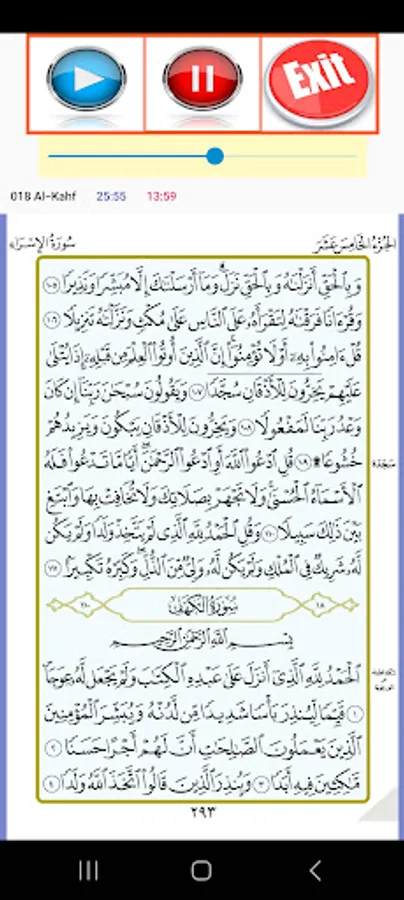 Exit
018 Al-Kahf 25:55 13:59
الجزء الخامس عشر سورة الإسراء
وَبِالْحَقِّ أَنزَلْنَاهُ وَبِالْحَقِّ نَزَلَ وَمَا أَرْسَلْنَاكَ إِلَّا مُبَشِّرًا وَنَذِيرًا ١٠٥
وَقُرْءَانًا فَرَقْنَاهُ لِتَقْرَأَهُ عَلَى النَّاسِ عَلَى مُكْثٍ وَنَزَّلْنَاهُ تَنزِيلًا ١٠٦
قُلْ ءَامِنُوا بِهِ أَوْ لَا تُؤْمِنُوا إِنَّ الَّذِينَ أُوتُوا الْعِلْمَ مِن قَبْلِهِ إِذَا يُتْلَى
عَلَيْهِمْ يَخِرُّونَ لِلْأَذْقَانِ سُجَّدًا ١٠٧ وَيَقُولُونَ سُبْحَانَ رَبِّنَا إِن كَانَ
وَعْدُ رَبِّنَا لَمَفْعُولًا ١٠٨ وَيَخِرُّونَ لِلْأَذْقَانِ يَبْكُونَ وَيَزِيدُهُمْ
خُشُوعًا ۩ ١٠٩ قُلِ ادْعُوا اللَّهَ أَوِ ادْعُوا الرَّحْمَٰنَ أَيًّا مَّا تَدْعُوا فَلَهُ
سجدة
الْأَسْمَاءُ الْحُسْنَى وَلَا تَجْهَرْ بِصَلَاتِكَ وَلَا تُخَافِتْ بِهَا وَابْتَغِ
بَيْنَ ذَٰلِكَ سَبِيلًا ١١٠ وَقُلِ الْحَمْدُ لِلَّهِ الَّذِي لَمْ يَتَّخِذْ وَلَدًا وَلَمْ يَكُن
لَّهُ شَرِيكٌ فِي الْمُلْكِ وَلَمْ يَكُن لَّهُ وَلِيٌّ مِّنَ الذُّلِّ وَكَبِّرْهُ تَكْبِيرًا ١١١
١٨ سورة الكهف ١١٠
بِسْمِ اللَّهِ الرَّحْمَٰنِ الرَّحِيمِ
الْحَمْدُ لِلَّهِ الَّذِي أَنزَلَ عَلَى عَبْدِهِ الْكِتَابَ وَلَمْ يَجْعَل لَّهُ عِوَجَا
١ قَيِّمًا لِّيُنذِرَ بَأْسًا شَدِيدًا مِّن لَّدُنْهُ وَيُبَشِّرَ الْمُؤْمِنِينَ
الَّذِينَ يَعْمَلُونَ الصَّالِحَاتِ أَنَّ لَهُمْ أَجْرًا حَسَنًا ٢
مَّاكِثِينَ فِيهِ أَبَدًا ٣ وَيُنذِرَ الَّذِينَ قَالُوا اتَّخَذَ اللَّهُ وَلَدًا ٤
٢٩٣